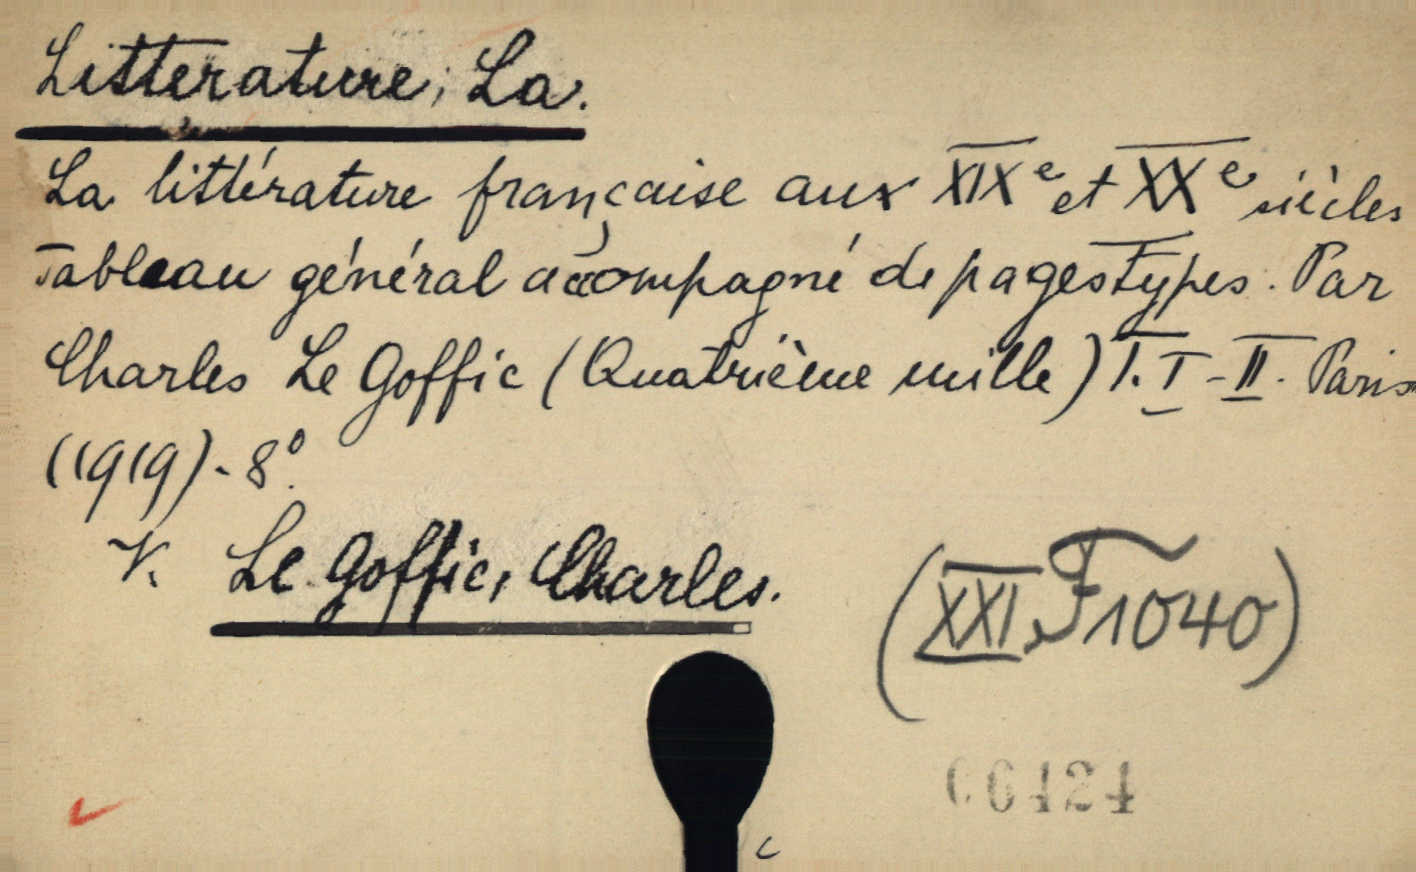 Litterature, La.
La littérature française aux XIXe et XXe siècles
Tableau général accompagné de pages Types. Par
Charles Le Goffic (Quatrième mille) T. I - II. Paris
(1919) - 8°.
V. Le Goffic, Charles.
(XXI. F 1040)
06424
c